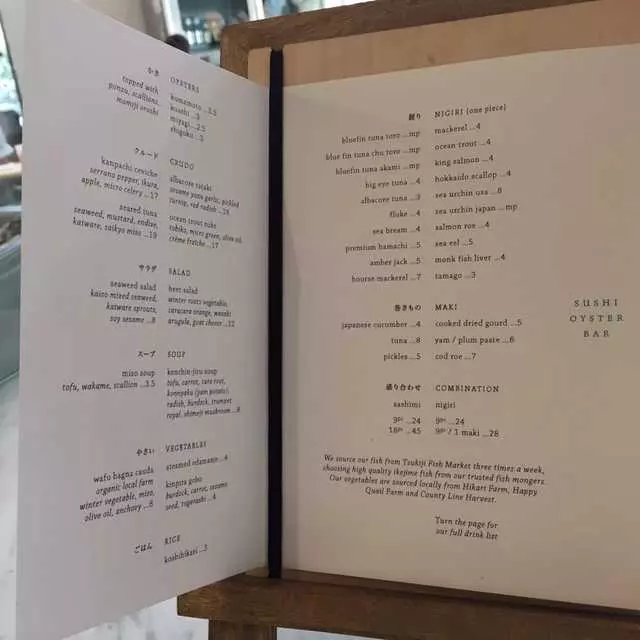 かき OYSTERS
topped with
ponzu, scallions,
momiji oroshi
kumamoto ...3.5
kusshi ...3
miyagi ...2.5
shigoku ...3
クルード CRUDO
kanpachi ceviche
serrano pepper, ikura,
apple, micro celery ...17
albacore tataki
sesame yuzu garlic, pickled
turnip, red radish ...16
seared tuna
seaweed, mustard, endive,
kaiware, saikyo miso ...19
ocean trout zuke
tobiko, micro green, olive oil,
crème fraîche ...17
サラダ SALAD
seaweed salad
kaiso mixed seaweed,
kaiware sprouts,
soy sesame ...8
beet salad
winter roots vegetable,
caracara orange, wasabi
arugula, goat cheese ...12
スープ SOUP
miso soup
tofu, wakame, scallion ...3.5
kenchin-jiru soup
tofu, carrot, taro root,
konnyaku (yam potato)
radish, burdock, trumpet
royal, shimeji mushroom ...8
やさい VEGETABLES
wafu bagna cauda
organic local farm
winter vegetable, miso,
olive oil, anchovy ...8
steamed edamame ...4
kinpira gobo
burdock, carrot, sesame
seed, togarashi ...4
ごはん RICE
koshihikari ...3
握り NIGIRI (one piece)
bluefin tuna toro ...mp
blue fin tuna chu toro ...mp
bluefin tuna akami ...mp
big eye tuna ...4
albacore tuna ...3
fluke ...4
sea bream ...4
premium hamachi ...5
amber jack ...5
hourse mackerel ...7
mackerel ...4
ocean trout ...4
king salmon ...4
hokkaido scallop ...4
sea urchin usa ...6
sea urchin japan ...mp
salmon roe ...4
sea eel ...5
monk fish liver ...4
tamago ...3
巻きもの MAKI
japanese cucumber ...4
tuna ...8
pickles ...5
cooked dried gourd ...5
yam / plum paste ...6
cod roe ...7
盛り合わせ COMBINATION
sashimi
9pc ...24
18pc ...45
nigiri
9pc ...24
9pc / 1 maki ...28
We source our fish from Tsukiji Fish Market three times a week,
choosing high quality ikejime fish from our trusted fish mongers.
Our vegetables are sourced locally from Hikari Farm, Happy
Quail Farm and County Line Harvest.
Turn the page for
our full drink list
SUSHI
OYSTER
BAR